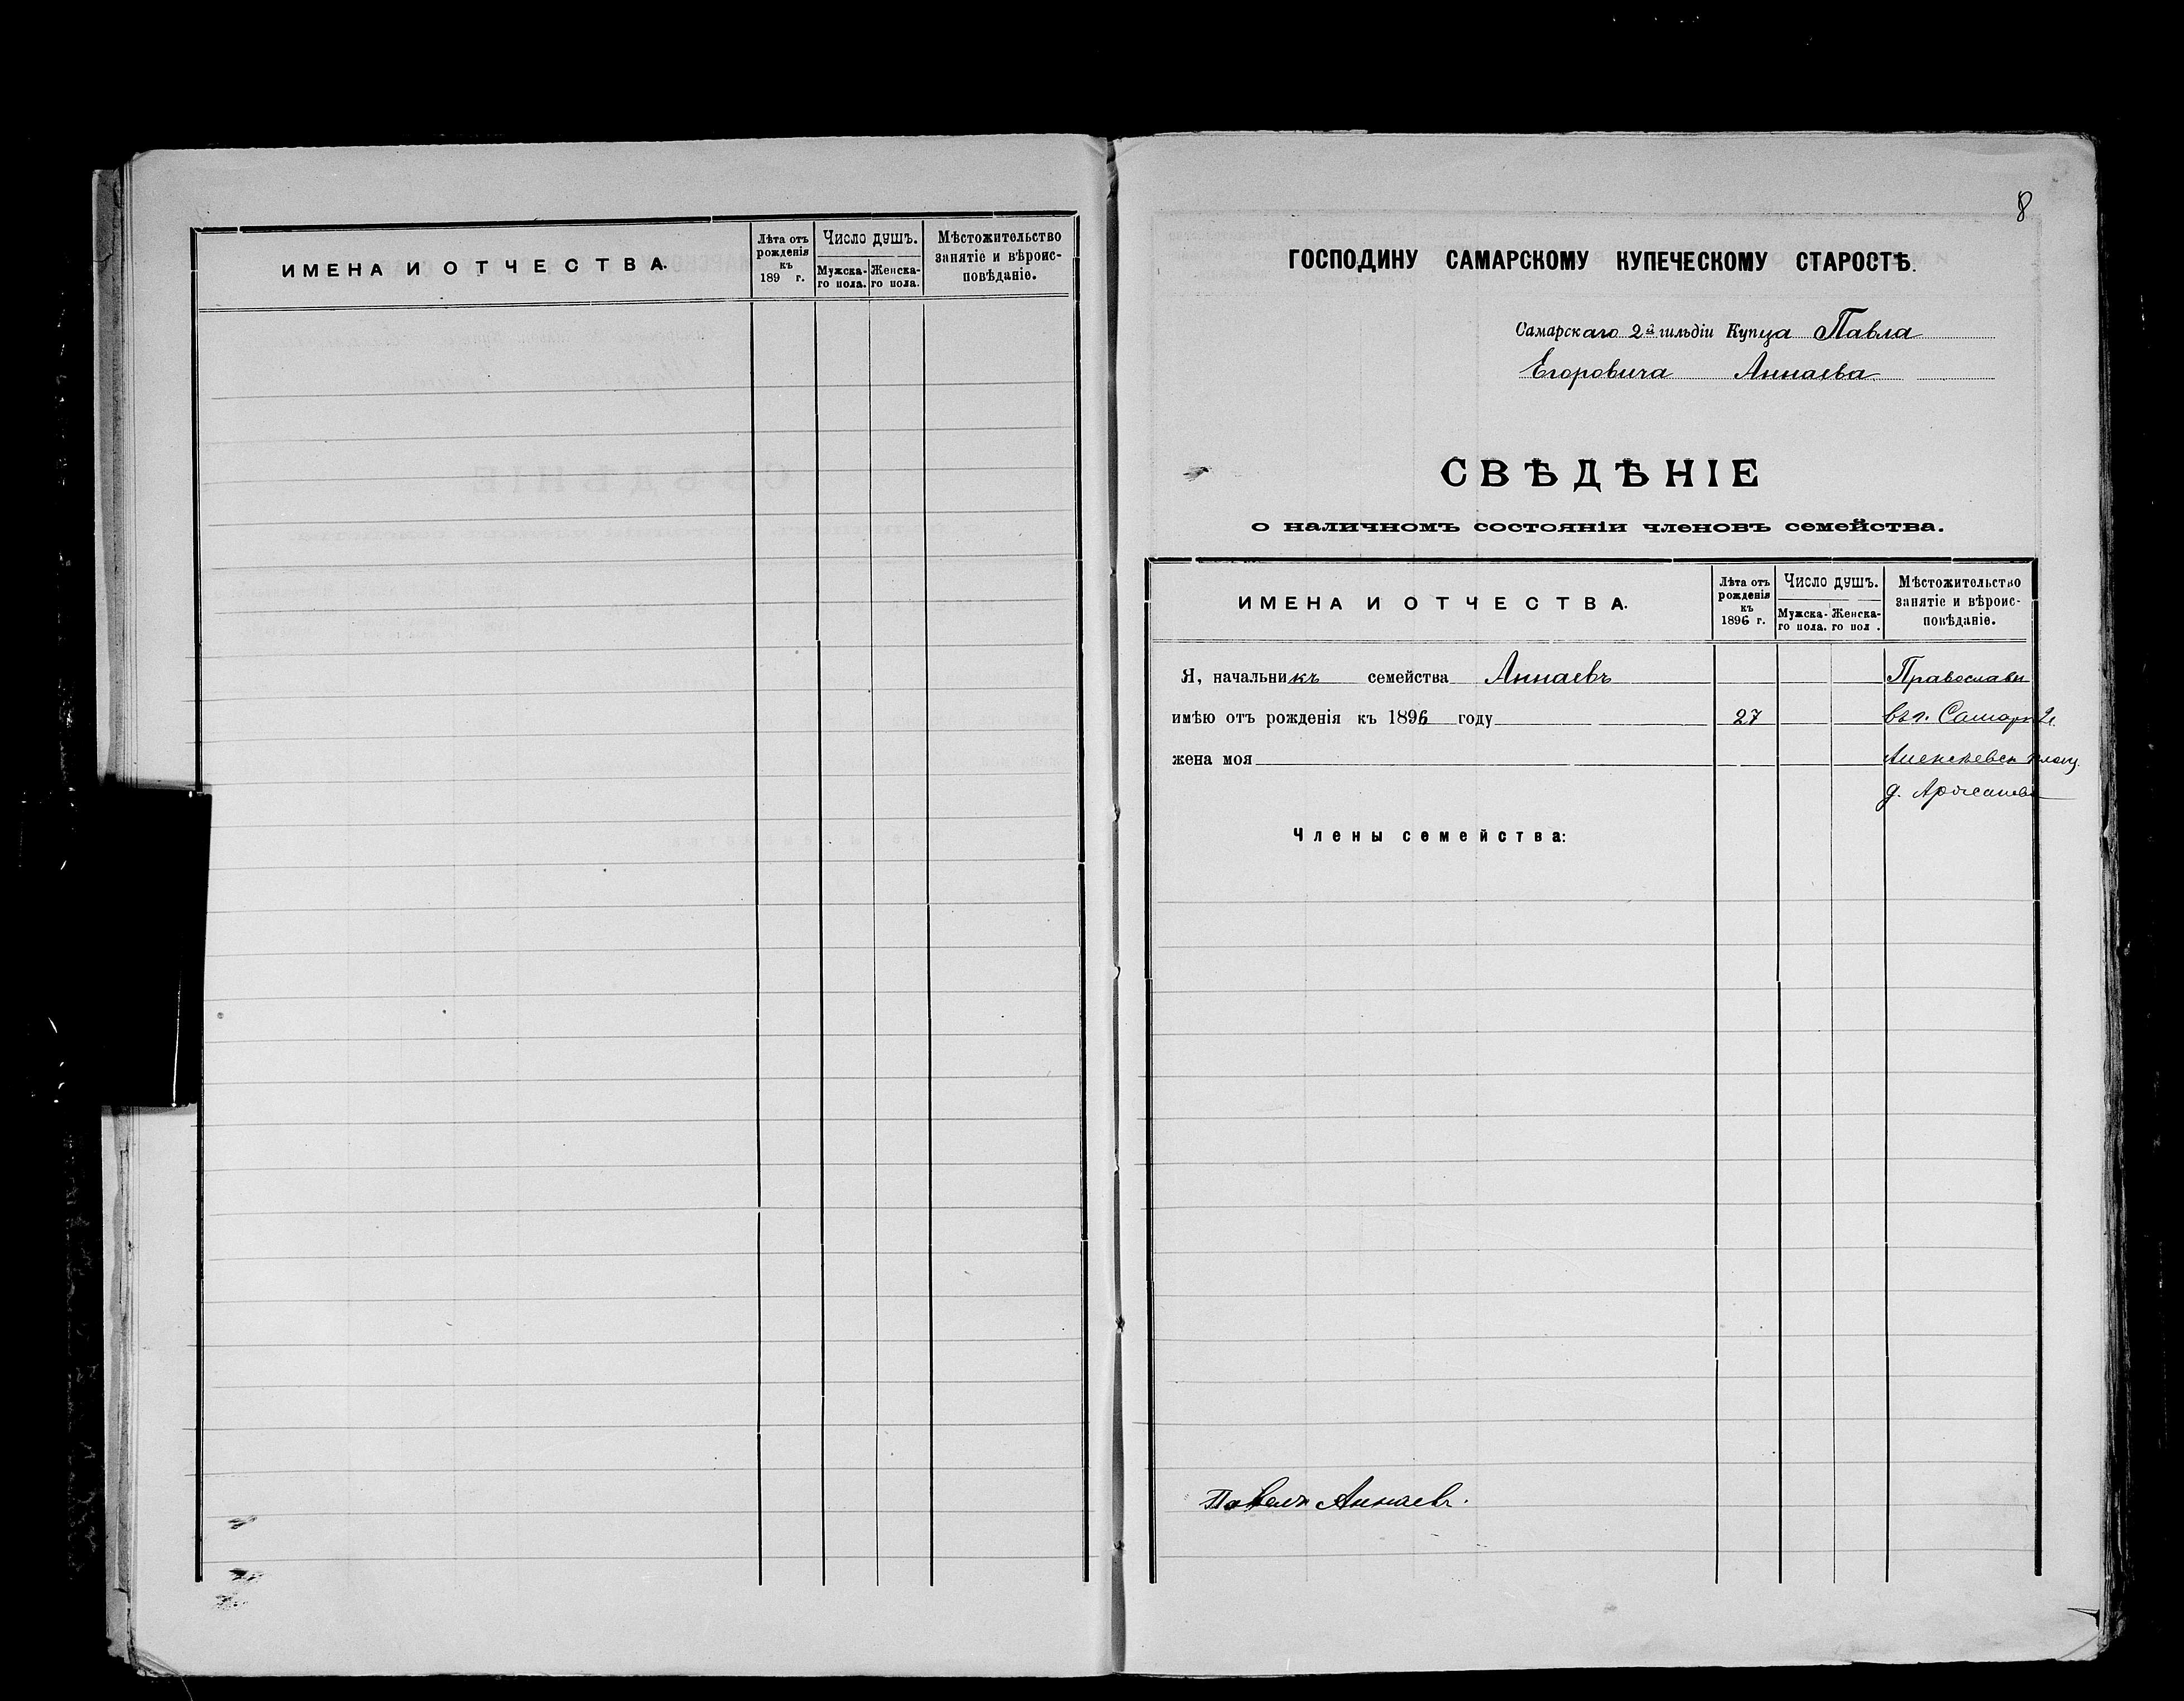 ИМЕНА И ОТЧЕСТВА.
Лѣта отъ рожденія къ 189 г.
Число душъ.
Мужска-го пола.
Женска-го пола.
Мѣстожительство занятіе и вѣроис-повѣданіе.
8
ГОСПОДИНУ САМАРСКОМУ КУПЕЧЕСКОМУ СТАРОСТѢ.
Самарскаго 2й гильдіи Купца Павла
Егоровича Аннаева
СВѢДѢНІЕ
о наличномъ состояніи членовъ семейства.
ИМЕНА И ОТЧЕСТВА.
Лѣта отъ рожденія къ 1896 г.
Число душъ.
Мужска-го пола.
Женска-го пол .
Мѣстожительство занятіе и вѣроис-повѣданіе.
Я, начальникъ семейства Аннаевъ Православн
имѣю отъ рожденія къ 1896 году 27 въ г. Самарѣ
жена моя Алексѣевск площ.
д.
Члены семейства:
Павелъ Аннаевъ.